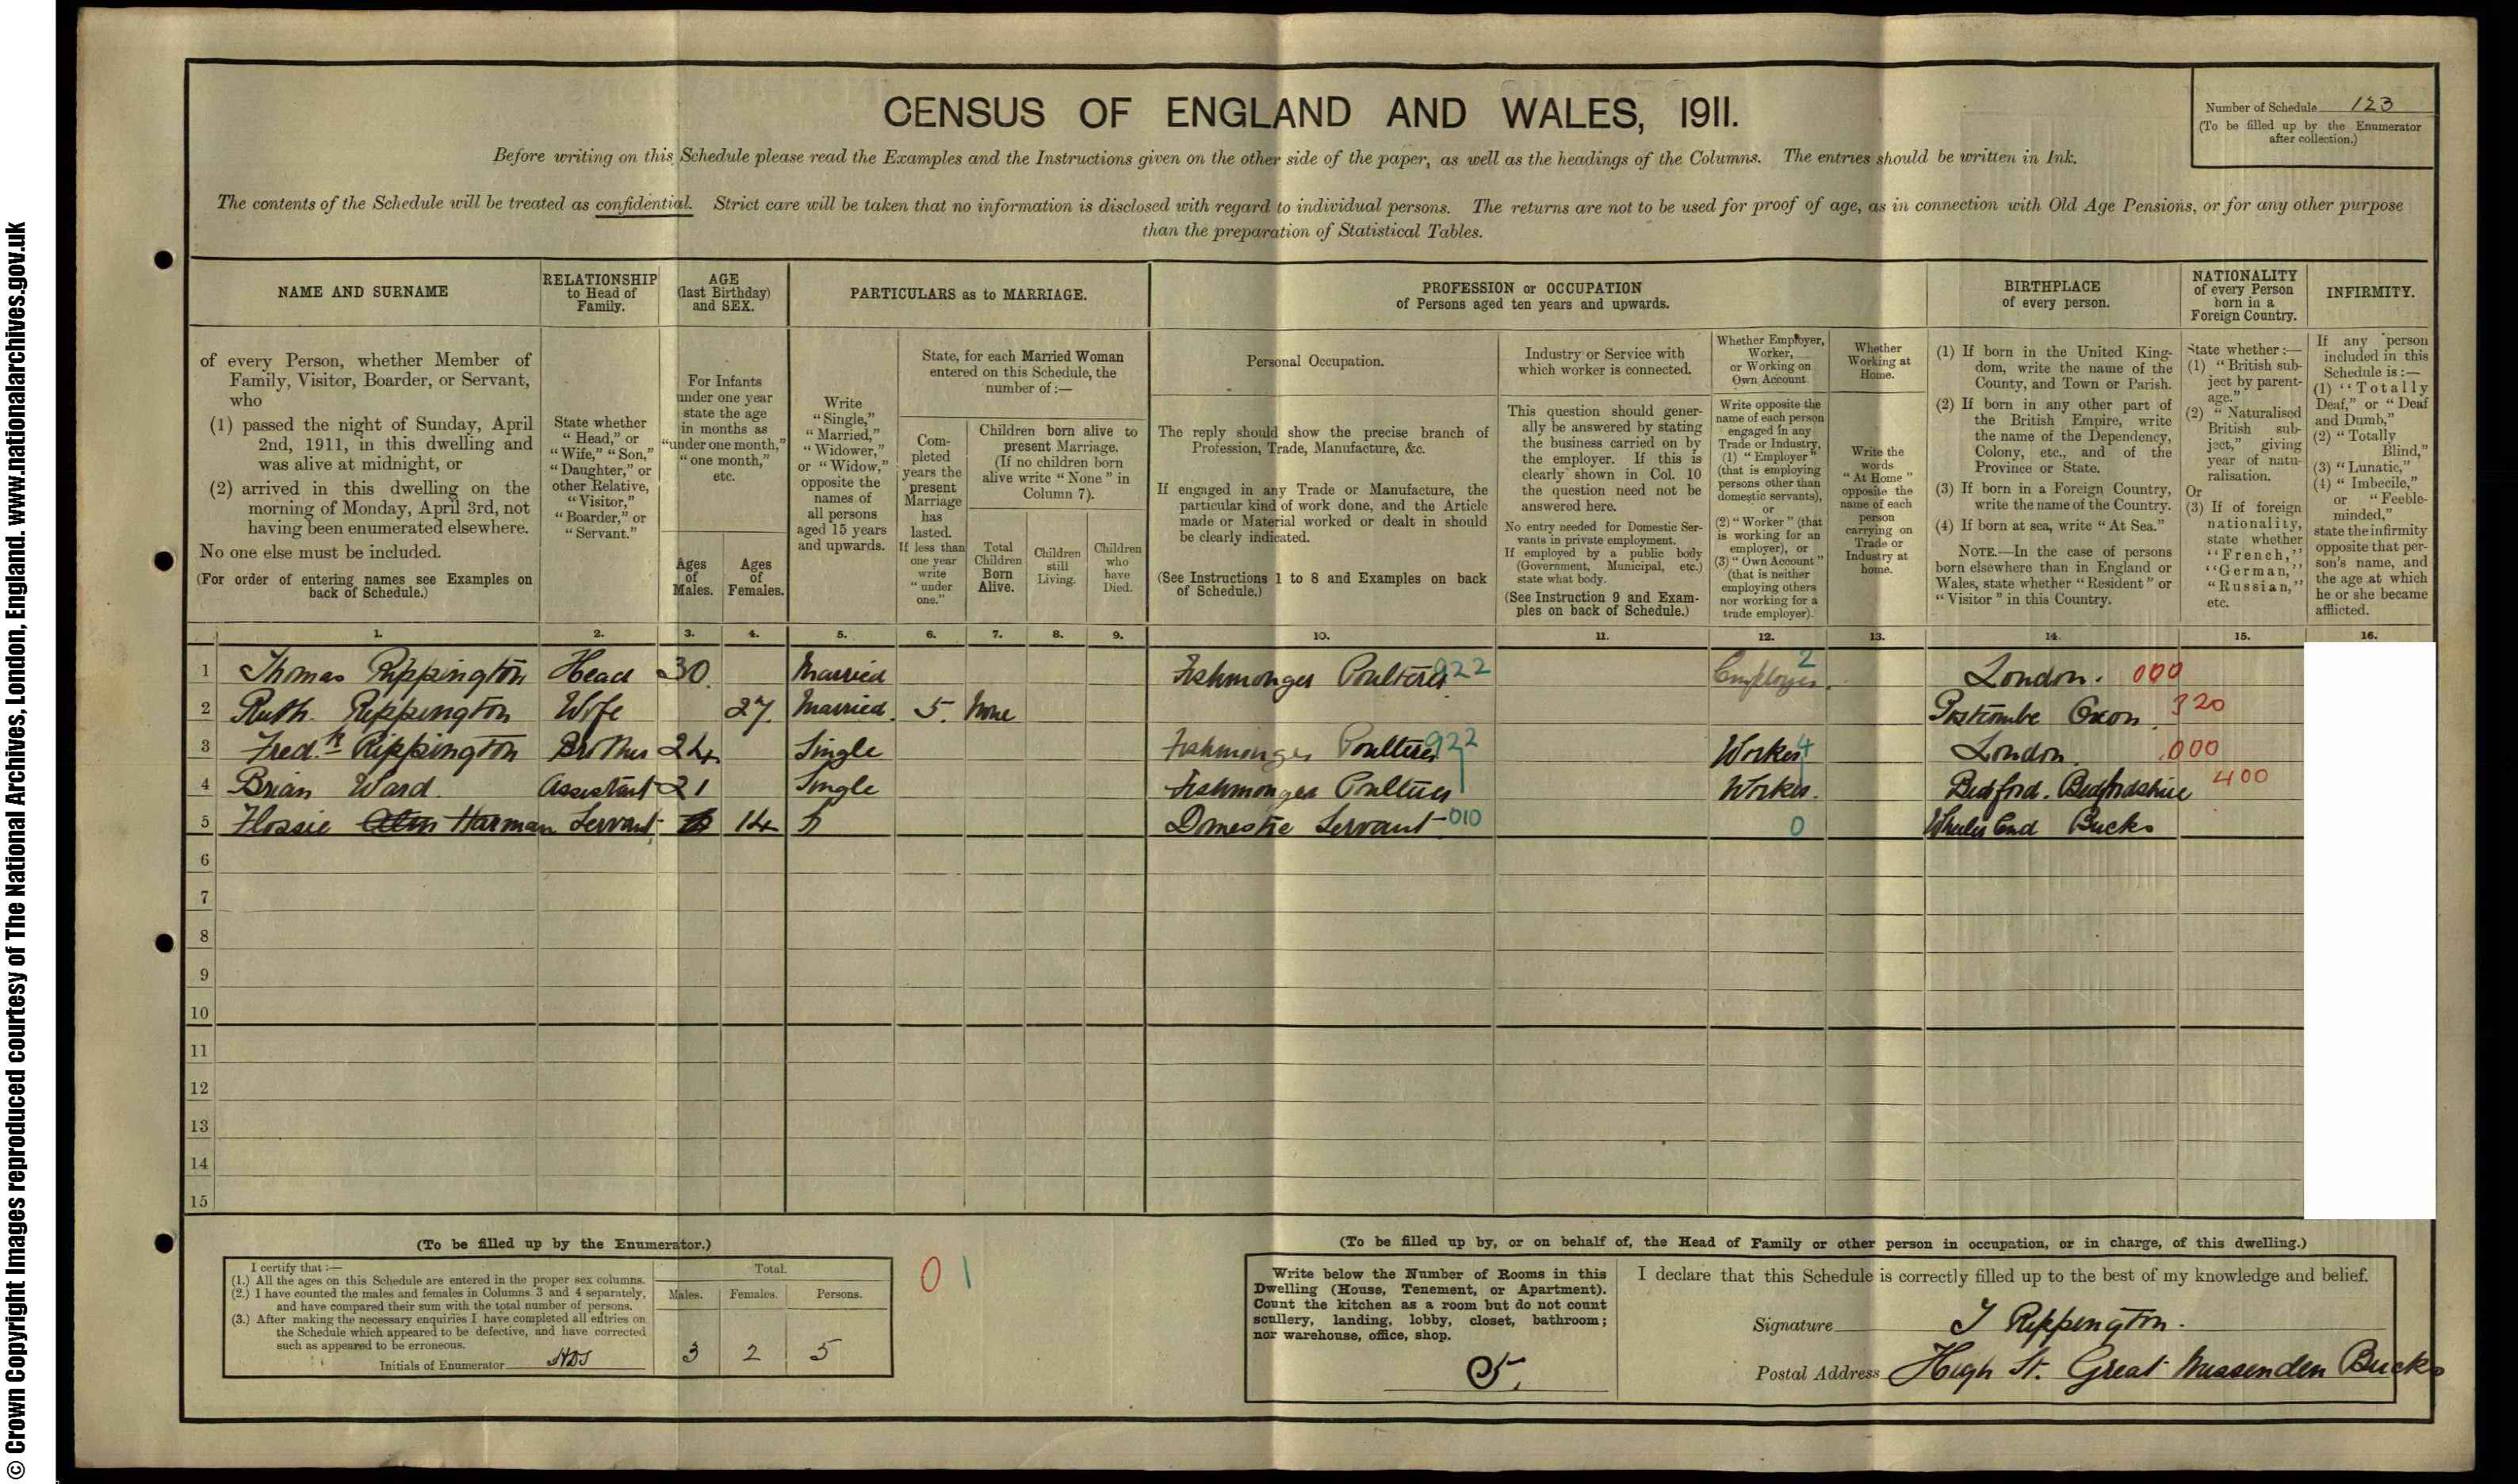 © Crown Copyright Images reproduced courtesy of The National Archives, London, England. www.nationalarchives.gov.uk
CENSUS OF ENGLAND AND WALES, 1911.
Number of Schedule 123
(To be filled up by the Enumerator
after collection.)
Before writing on this Schedule please read the Examples and the Instructions given on the other side of the paper, as well as the headings of the Columns. The entries should be written in Ink.
The contents of the Schedule will be treated as confidential. Strict care will be taken that no information is disclosed with regard to individual persons. The returns are not to be used for proof of age, as in connection with Old Age Pensions, or for any other purpose
than the preparation of Statistical Tables.
NAME AND SURNAME
of every Person, whether Member of
Family, Visitor, Boarder, or Servant,
who
(1) passed the night of Sunday, April
2nd, 1911, in this dwelling and
was alive at midnight, or
(2) arrived in this dwelling on the
morning of Monday, April 3rd, not
having been enumerated elsewhere.
No one else must be included.
(For order of entering names see Examples on
back of Schedule.)
RELATIONSHIP
to Head of
Family.
State whether
"Head," or
"Wife," "Son,"
"Daughter," or
other Relative,
"Visitor,"
"Boarder," or
"Servant."
AGE
(last Birthday)
and SEX.
For Infants
under one year
state the age
in months as
"under one month,"
"one month,"
etc.
Ages
of
Males.
Ages
of
Females.
PARTICULARS as to MARRIAGE.
Write
"Single,"
"Married,"
"Widower,"
or "Widow,"
opposite the
names of
all persons
aged 15 years
and upwards.
State, for each Married Woman
entered on this Schedule, the
number of :—
Com-
pleted
years the
present
Marriage
has
lasted.
If less than
one year
write
"under
one."
Children born alive to
present Marriage.
(If no children born
alive write "None" in
Column 7).
Total
Children
Born
Alive.
Children
still
Living.
Children
who
have
Died.
PROFESSION or OCCUPATION
of Persons aged ten years and upwards.
Personal Occupation.
The reply should show the precise branch of
Profession, Trade, Manufacture, &c.
If engaged in any Trade or Manufacture, the
particular kind of work done, and the Article
made or Material worked or dealt in should
be clearly indicated.
(See Instructions 1 to 8 and Examples on back
of Schedule.)
Industry or Service with
which worker is connected.
This question should gener-
ally be answered by stating
the business carried on by
the employer. If this is
clearly shown in Col. 10
the question need not be
answered here.
No entry needed for Domestic Ser-
vants in private employment.
If employed by a public body
(Government, Municipal, etc.)
state what body.
(See Instruction 9 and Exam-
ples on back of Schedule.)
Whether Employer,
Worker,
or Working on
Own Account.
Write opposite the
name of each person
engaged in any
Trade or Industry,
(1) "Employer"
(that is employing
persons other than
domestic servants),
or
(2) "Worker" (that
is working for an
employer), or
(3) "Own Account"
(that is neither
employing others
nor working for a
trade employer).
Whether
Working at
Home.
Write the
words
"At Home"
opposite the
name of each
person
carrying on
Trade or
Industry at
home.
BIRTHPLACE
of every person.
(1) If born in the United King-
dom, write the name of the
County, and Town or Parish.
(2) If born in any other part of
the British Empire, write
the name of the Dependency,
Colony, etc., and of the
Province or State.
(3) If born in a Foreign Country,
write the name of the Country.
(4) If born at sea, write "At Sea."
NOTE.—In the case of persons
born elsewhere than in England or
Wales, state whether "Resident" or
"Visitor" in this Country.
NATIONALITY
of every Person
born in a
Foreign Country.
State whether :—
(1) "British sub-
ject by parent-
age."
(2) "Naturalised
British sub-
ject," giving
year of natu-
ralisation.
Or
(3) If of foreign
nationality,
state whether
"French,"
"German,"
"Russian,"
etc.
INFIRMITY.
If any person
included in this
Schedule is :—
(1) "Totally
Deaf," or "Deaf
and Dumb,"
(2) "Totally
Blind,"
(3) "Lunatic,"
(4) "Imbecile,"
or "Feeble-
minded,"
state the infirmity
opposite that per-
son's name, and
the age at which
he or she became
afflicted.
1. 2. 3. 4. 5. 6. 7. 8. 9. 10. 11. 12. 13. 14. 15. 16.
1 Thomas Rippington Head 30 Married Fishmonger Poulterer 922 Employer 2 London. 000
2 Ruth Rippington Wife 27 Married 5 None Postcombe Oxon. 320
3 Fredk Rippington Brother 24 Single Fishmonger Poulterer 922 Worker 4 London 000
4 Brian Ward Assistant 21 Single Fishmonger Poulterer Worker. Bedford. Bedfordshire 400
5 Flossie Harman Servant 14 S Domestic Servant 010 0 Wheeler End Bucks
6
7
8
9
10
11
12
13
14
15
(To be filled up by the Enumerator.)
I certify that :—
(1.) All the ages on this Schedule are entered in the proper sex columns.
(2.) I have counted the males and females in Columns 3 and 4 separately,
and have compared their sum with the total number of persons.
(3.) After making the necessary enquiries I have completed all entries on
the Schedule which appeared to be defective, and have corrected
such as appeared to be erroneous.
Initials of Enumerator
Total.
Males. Females. Persons.
3 2 5
0 1
(To be filled up by, or on behalf of, the Head of Family or other person in occupation, or in charge, of this dwelling.)
Write below the Number of Rooms in this
Dwelling (House, Tenement, or Apartment).
Count the kitchen as a room but do not count
scullery, landing, lobby, closet, bathroom;
nor warehouse, office, shop.
5
I declare that this Schedule is correctly filled up to the best of my knowledge and belief.
Signature T Rippington.
Postal Address High St. Great Missenden Bucks